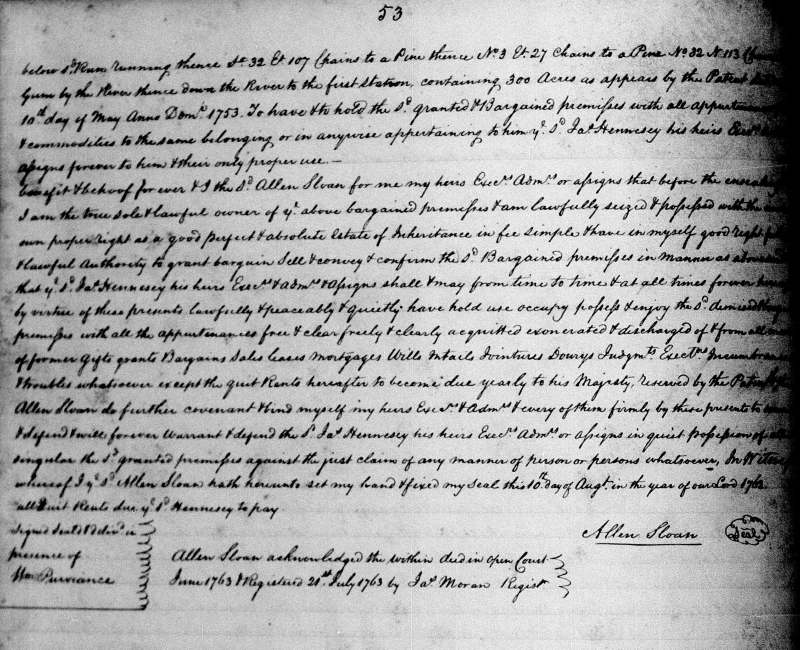 53
below sd. Run running thence St. 32 Et. 107 Chains to a Pine thence No. 3 Et. 27 Chains to a Pine No. 32 N 113
Gum by the River thence down the River to the first Station, containing 300 Acres as appears by the Patent
10th day of May Anno Dom. 1753. To have & to hold the sd. granted & Bargained premisses with all
& commodities to the same belonging or in anywise appertaining to him ye. sd. Jas. Hennesey his heirs
assigns forever to him & their only proper use. —
benefit & behoof for ever & I the sd. Allen Sloan for me my heirs Execrs. Admrs. or assigns that before the
I am the true sole & lawful owner of ye. above bargained premisses & am lawfully seized & possessed with the
own proper right as a good perfect & absolute Estate of Inheritance in fee simple & have in myself good right
& lawful Authority to grant bargain Sell & convey & confirm the sd. Bargained premisses in manner as
that ye. sd. Jas. Hennesey his heirs Execrs. & admrs. & assigns shall & may from time to time & at all times forever
by virtue of these presents lawfully & peaceably & quietly have hold use occupy possess & enjoy the sd.
premisses with all the appurtenances free & clear freely & clearly acquitted exonerated & discharged of & from all
of former Gifts grants Bargains Sales leases Mortgages Wills Intails Jointures Dowrys Judgmts. Execns.
& troubles whatsoever except the quit Rents hereafter to become due yearly to his Majesty, reserved by the
Allen Sloan do further covenant & bind myself my heirs Execrs. & Admrs. & every of them firmly by these presents to
& defend & will forever Warrant & defend the sd. Jas. Hennesey his heirs Execrs. Admrs. or assigns in quiet possession of
singular the sd. granted premisses against the just claim of any manner of person or persons whatsoever, In
whereof I ye. sd. Allen Sloan hath hereunto set my hand & fixed my Seal this 10th. day of Augt. in the year of our Lord 1762
all Quit Rents due ye. sd. Hennesey to pay
Allen Sloan Seal
Signed Seald & delivd. in
presence of
Wm. Purviance
Allen Sloan acknowledged the within deed in open Court
June 1763 & Registered 21st. July 1763 by Jas. Moran Regist.